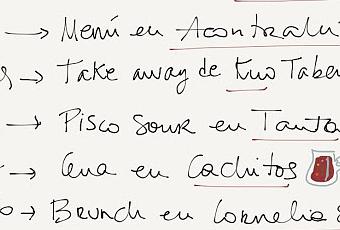 → Menú en Acontralu
→ Take away de Kuo Taber
→ Pisco Sour en Tanta
→ Cena en Cachitos
→ Brunch en Cornelia &